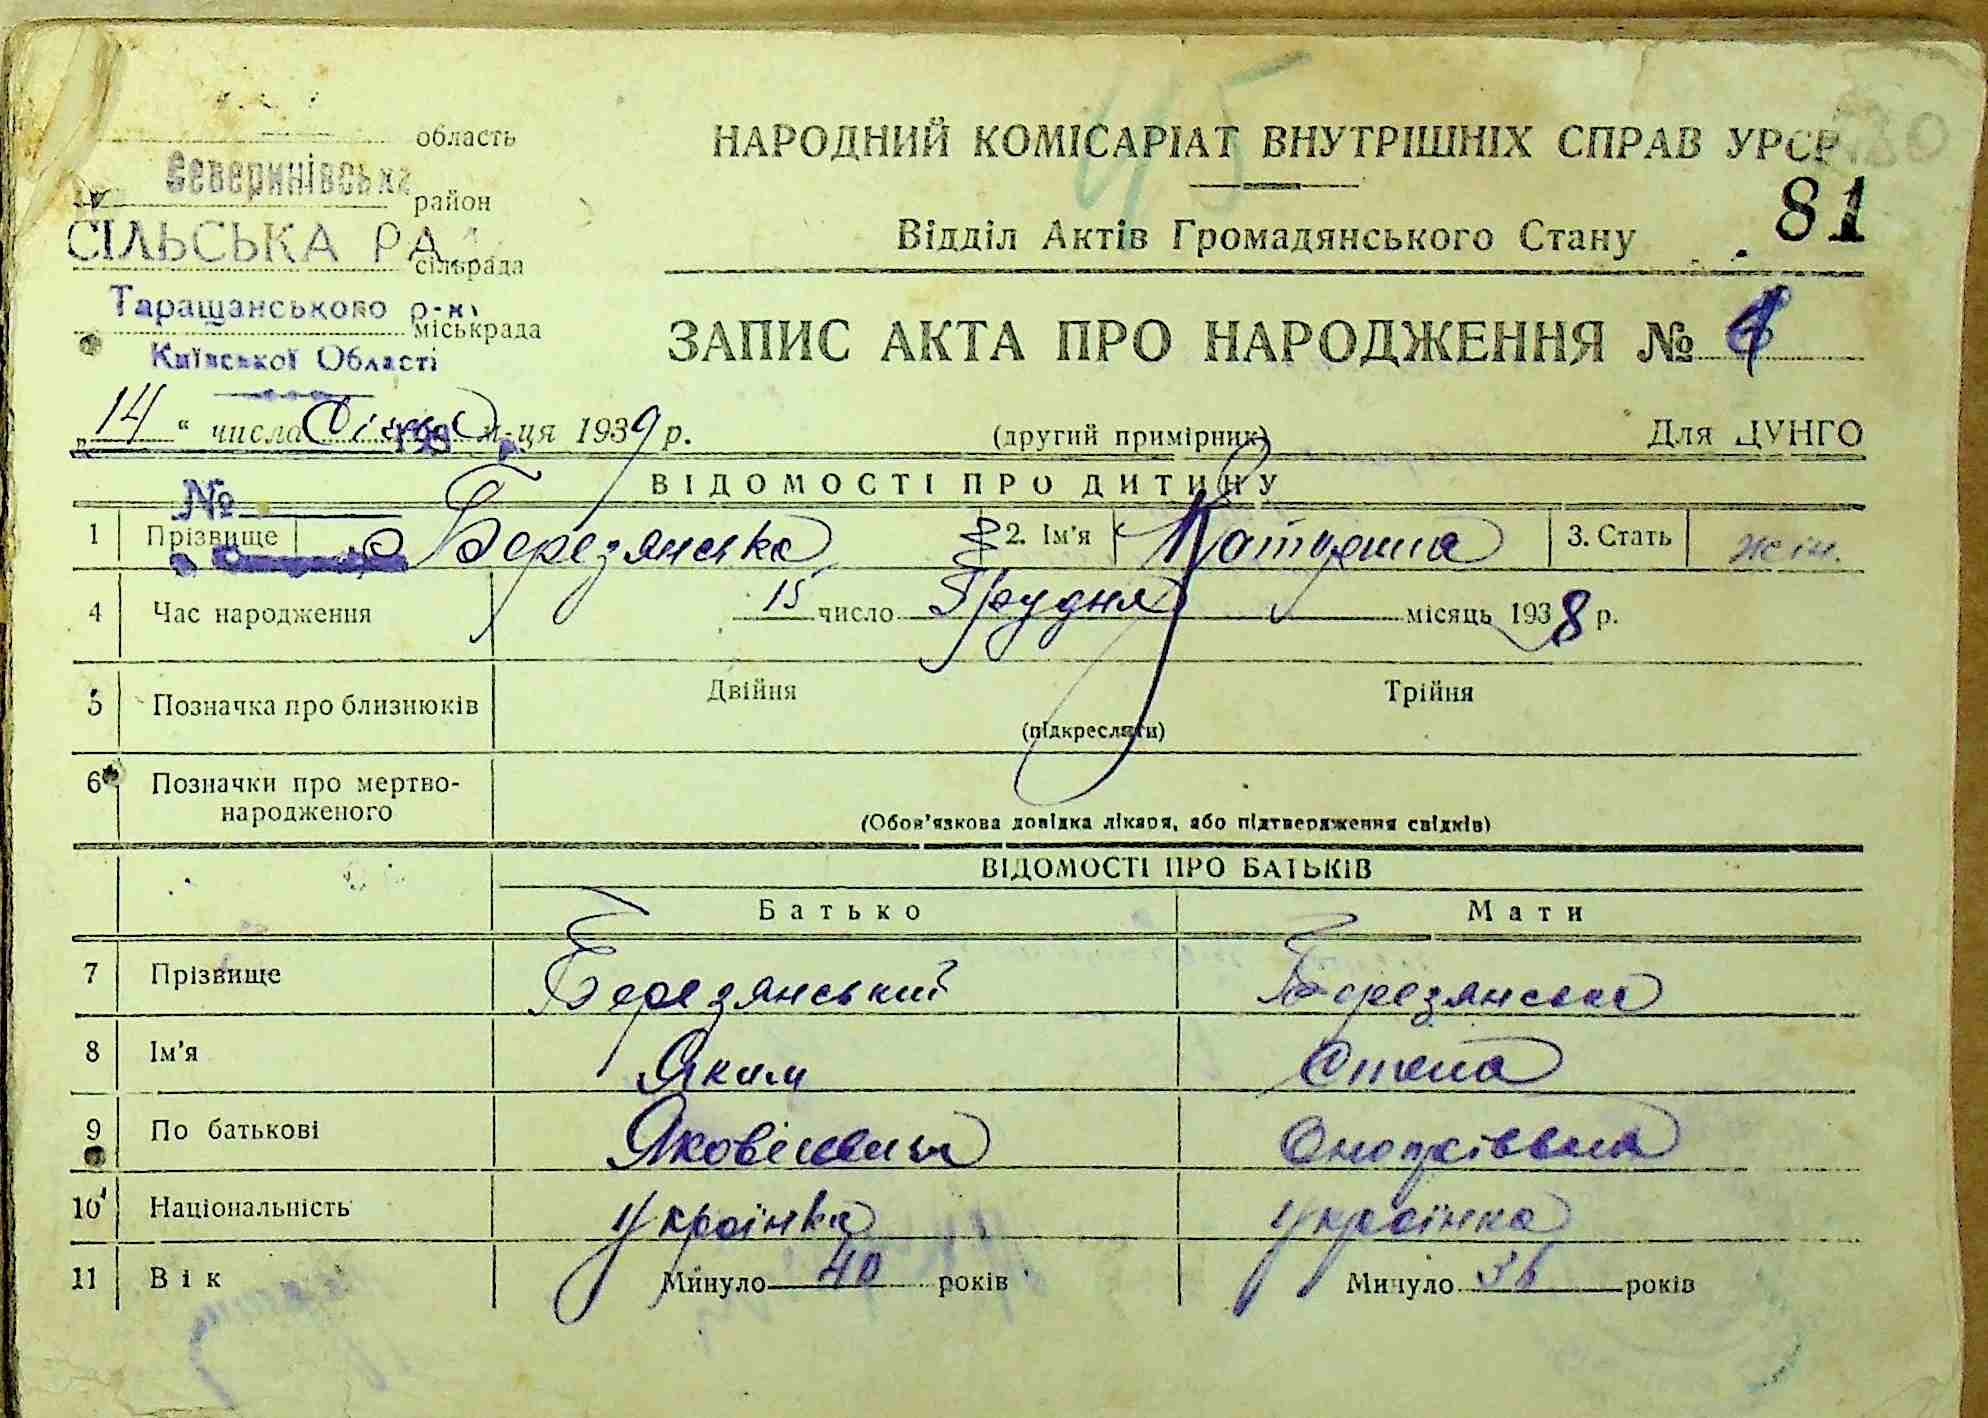 область
Северинівська
район
СІЛЬСЬКА РА
сільрада
Таращанського р-ну
міськрада
Київської Області
НАРОДНИЙ КОМІСАРІАТ ВНУТРІШНІХ СПРАВ УРСР
45
81
Відділ Актів Громадянського Стану
ЗАПИС АКТА ПРО НАРОДЖЕННЯ №
„14“ числа Січня м-ця 1939 р. (другий примірник) Для ЦУНГО
ВІДОМОСТІ ПРО ДИТИНУ
№
1 Прізвище Березянська 2. Ім'я 3. Стать жін.
4 Час народження 15 число Грудня місяць 1938 р.
5 Позначка про близнюків Двійня Трійня
(підкреслити)
6 Позначки про мертво-
народженого
(Обов'язкова довідка лікаря, або підтвердження свідків)
ВІДОМОСТІ ПРО БАТЬКІВ
Батько Мати
7 Прізвище Березянський Березянська
8 Ім'я Яким
9 По батькові
10 Національність українка українка
11 Вік Минуло 40 років Минуло 36 років